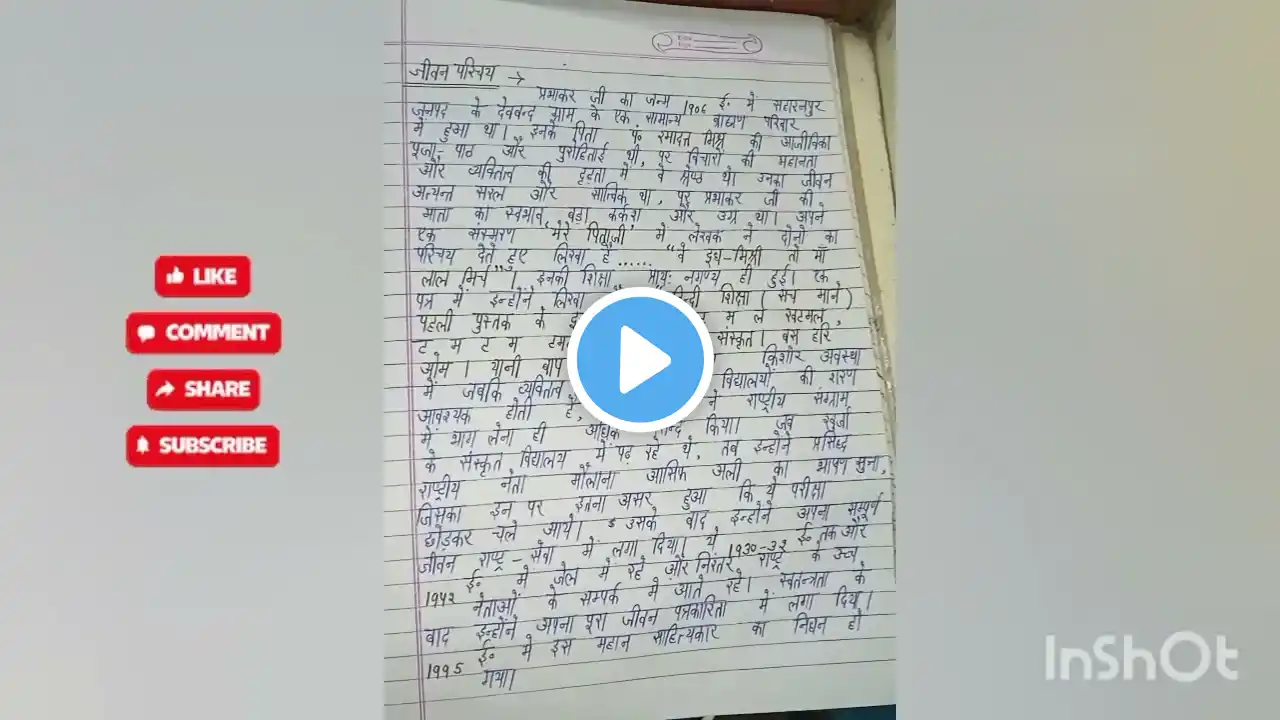 जीवन परिचय →
प्रभाकर जी का जन्म 1906 ई॰ में सहारनपुर
जनपद के देवबन्द ग्राम के एक सामान्य ब्राह्मण परिवार
में हुआ था। इनके पिता पं॰ रमादत्त मिश्र की आजीविका
पूजा-पाठ और पुरोहिताई थी, पर विचारों की महानता
और व्यक्तित्व की दृढ़ता में वे श्रेष्ठ थे। उनका जीवन
अत्यन्त सरल और सात्विक था, पर प्रभाकर जी की
माता का स्वभाव बड़ा कर्कश और उग्र था। अपने
एक संस्मरण "मेरे पिताजी" में लेखक ने दोनों का
परिचय देते हुए लिखा है ...... "वे दूध-मिश्री तो माँ
लाल मिर्च"। इनकी शिक्षा प्रायः नगण्य ही हुई। एक
पत्र में इन्होंने लिखा शिक्षा (सच माने)
पहली पुस्तक के म ल खटमल,
ट म ट म संस्कृत। बस हरि
ओम। यानी बाप किशोर अवस्था
में जबकि व्यक्तित्व विद्यालयों की शरण
आवश्यक होती है, ने राष्ट्रीय संग्राम
में भाग लेना ही अधिक किया। जब खुर्जा
के संस्कृत विद्यालय में पढ़ रहे थे, तब इन्होंने प्रसिद्ध
राष्ट्रीय नेता मौलाना आसिफ अली का भाषण सुना,
जिसका इन पर इतना असर हुआ कि ये परीक्षा
छोड़कर चले आये। उसके बाद इन्होंने अपना सम्पूर्ण
जीवन राष्ट्र-सेवा में लगा दिया। ये 1930-32 ई॰ तक और
1942 ई॰ में जेल में रहे और निरंतर राष्ट्र के उच्च
नेताओं के सम्पर्क में आते रहे। स्वतन्त्रता के
बाद इन्होंने अपना पूरा जीवन पत्रकारिता में लगा दिया।
1995 ई॰ में इस महान साहित्यकार का निधन हो
गया।
LIKE
COMMENT
SHARE
SUBSCRIBE
InShOt